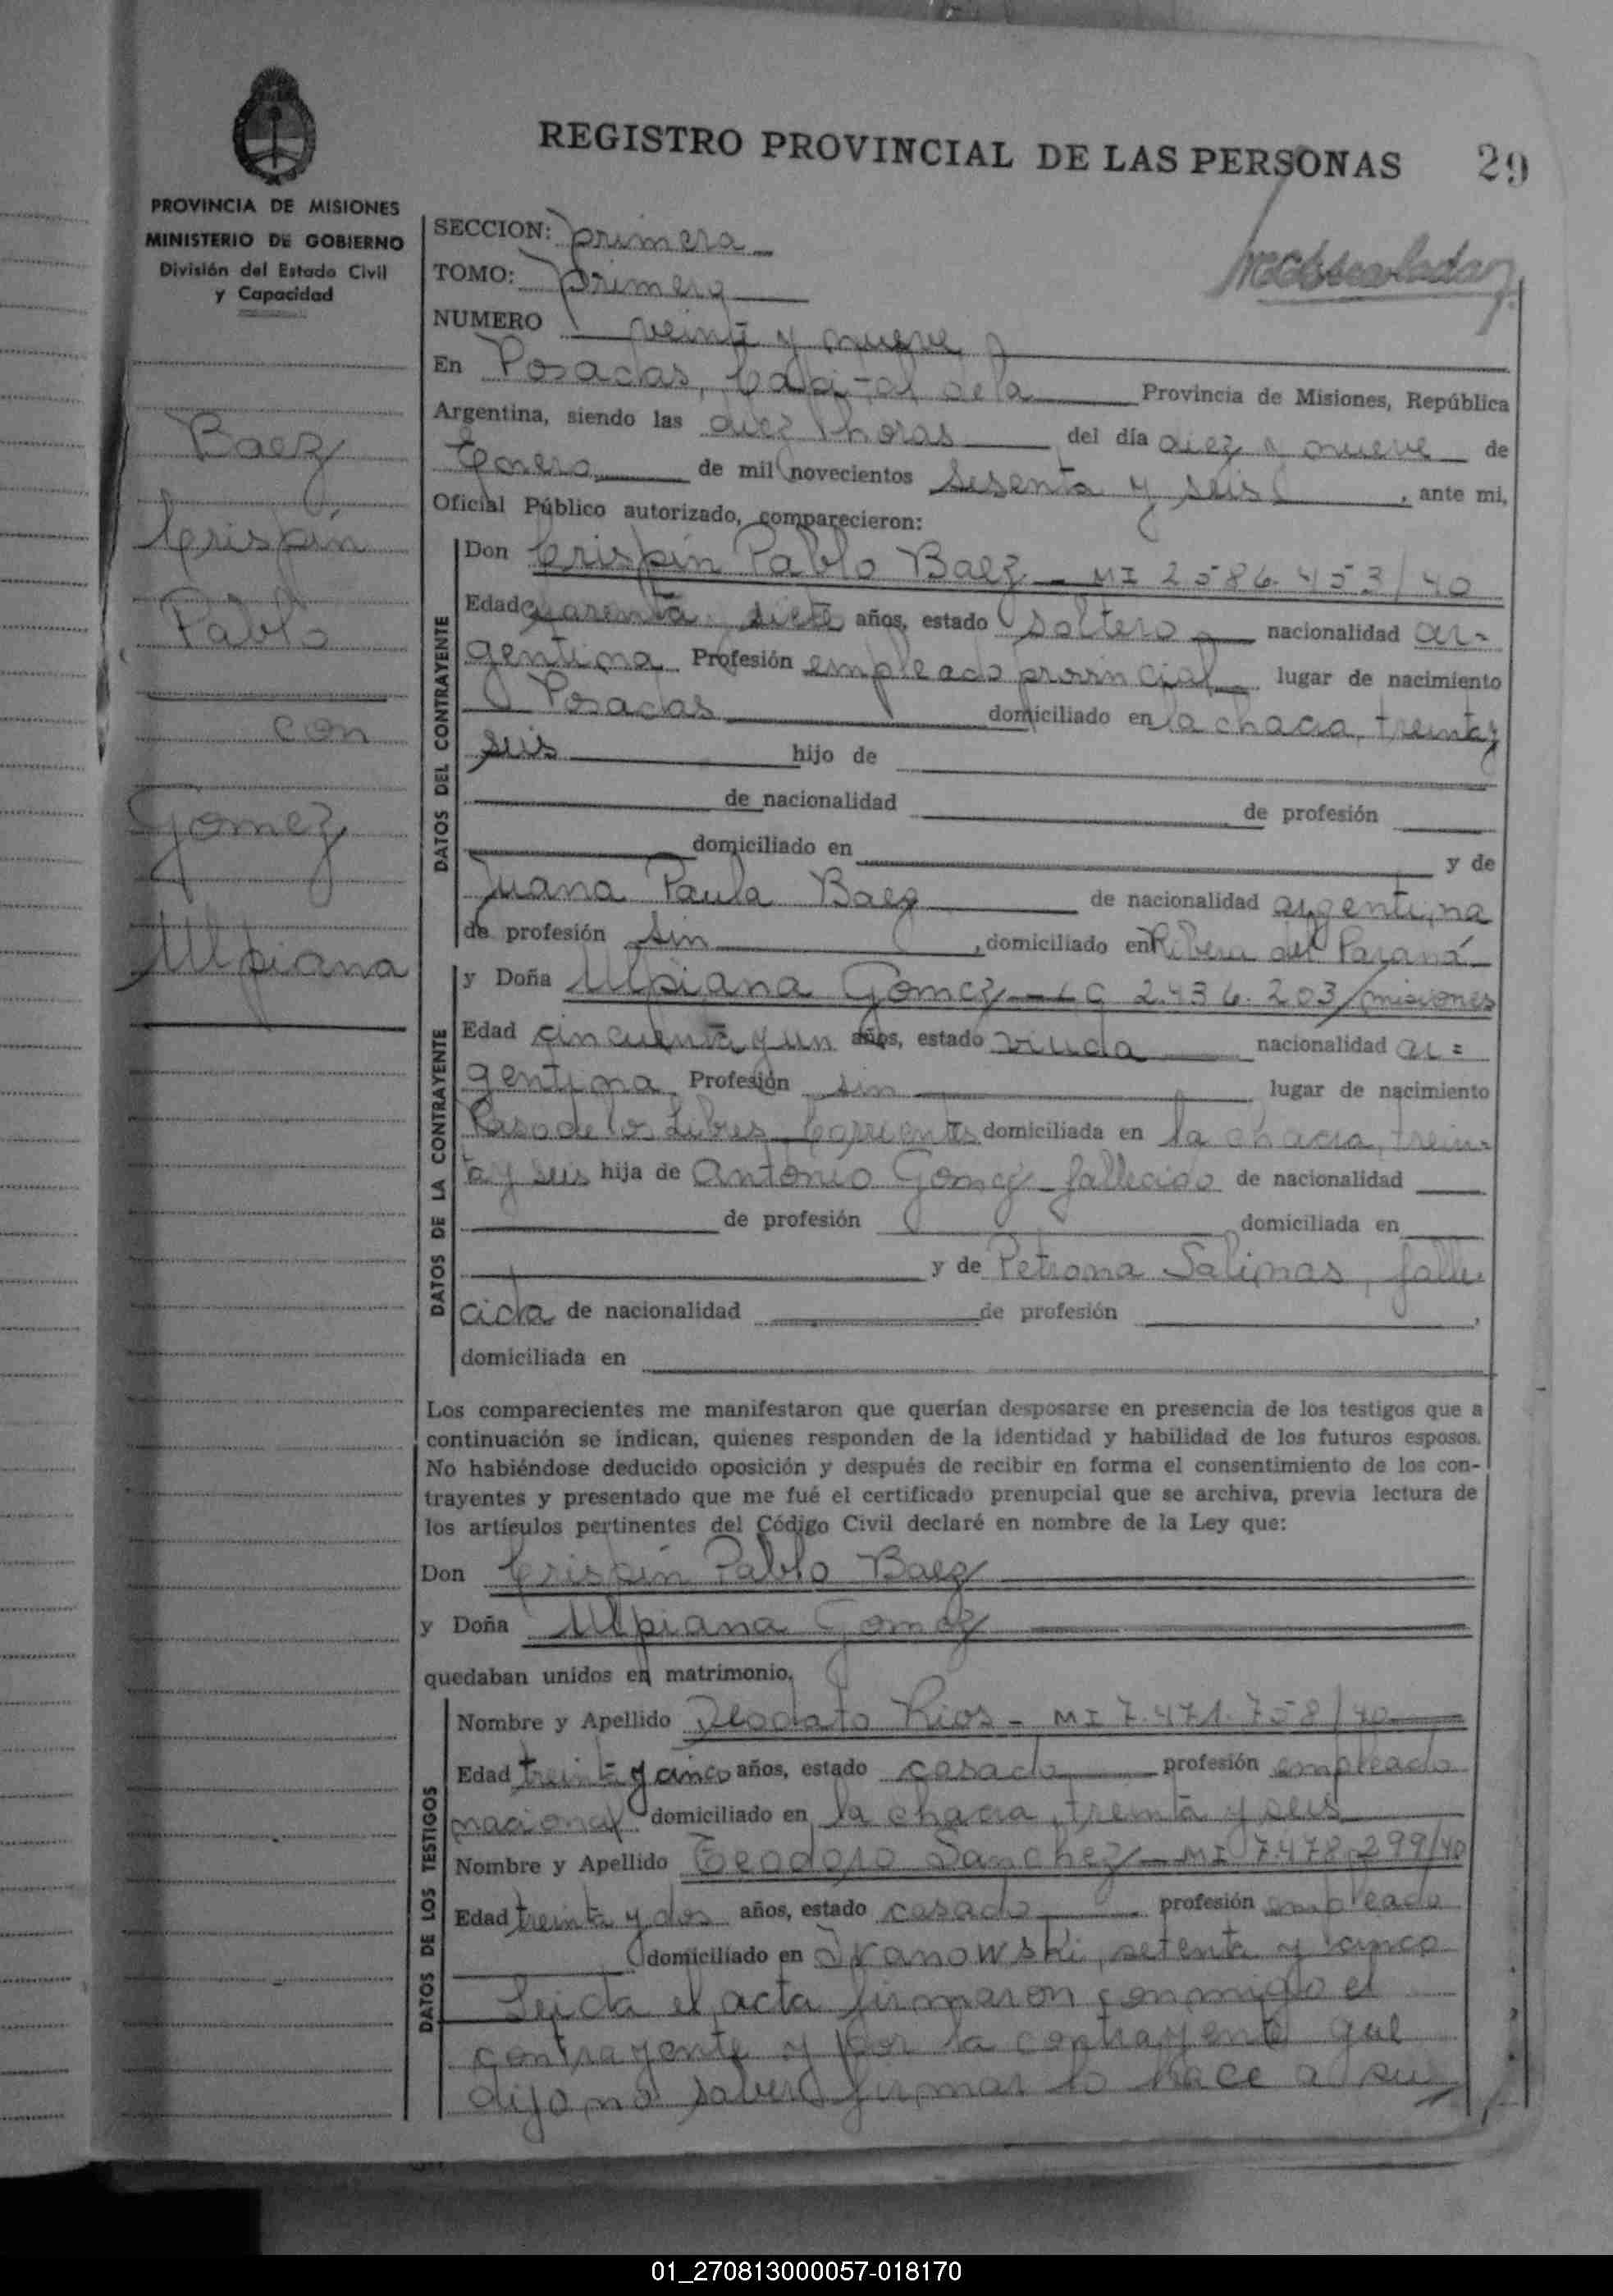 REGISTRO PROVINCIAL DE LAS PERSONAS 29
PROVINCIA DE MISIONES
MINISTERIO DE GOBIERNO
División del Estado Civil
y Capacidad
Baez
Crispín
Pablo
con
Gomez
Ulpiana
SECCION: primera
TOMO: primero
NUMERO veinte y nueve
En Posadas, Capital de la Provincia de Misiones, República
Argentina, siendo las diez horas del día diez y nueve de
Enero de mil novecientos sesenta y seis, ante mi,
Oficial Público autorizado, comparecieron:
DATOS DEL CONTRAYENTE
Don Crispín Pablo Baez - MI 2586.453/40
Edad cuarenta y siete años, estado soltero nacionalidad ar-
gentina Profesión empleado provincial lugar de nacimiento
Posadas domiciliado en la chacra, treinta y
seis hijo de
de nacionalidad de profesión
domiciliado en y de
Juana Paula Baez de nacionalidad argentina
de profesión sin, domiciliado en Ribera del Paraná
DATOS DE LA CONTRAYENTE
y Doña Ulpiana Gomez - LC 2.436.203/misiones
Edad cincuenta y un años, estado viuda nacionalidad ar=
gentina Profesión sin lugar de nacimiento
Paso de los Libres Corrientes domiciliada en la chacra, trein-
ta y seis hija de Antonio Gomez fallecido de nacionalidad
de profesión domiciliada en
y de Petrona Salinas, falle
cida de nacionalidad de profesión,
domiciliada en
Los comparecientes me manifestaron que querían desposarse en presencia de los testigos que a
continuación se indican, quienes responden de la identidad y habilidad de los futuros esposos.
No habiéndose deducido oposición y después de recibir en forma el consentimiento de los con-
trayentes y presentado que me fué el certificado prenupcial que se archiva, previa lectura de
los artículos pertinentes del Código Civil declaré en nombre de la Ley que:
Don Crispín Pablo Baez
y Doña Ulpiana Gomez
quedaban unidos en matrimonio.
DATOS DE LOS TESTIGOS
Nombre y Apellido Deodato Rios - MI 7.471.758/40
Edad treinta y cinco años, estado casado profesión empleado
nacional domiciliado en la chacra, treinta y seis
Nombre y Apellido Teodoro Sanchez - MI 7.478.299/40
Edad treinta y dos años, estado casado profesión empleado
domiciliado en Ivanowski, setenta y cinco
Leida el acta firmaron conmigo el
contrayente y por la contrayente que
dijo no saber firmar lo hace a su
01_270813000057-018170